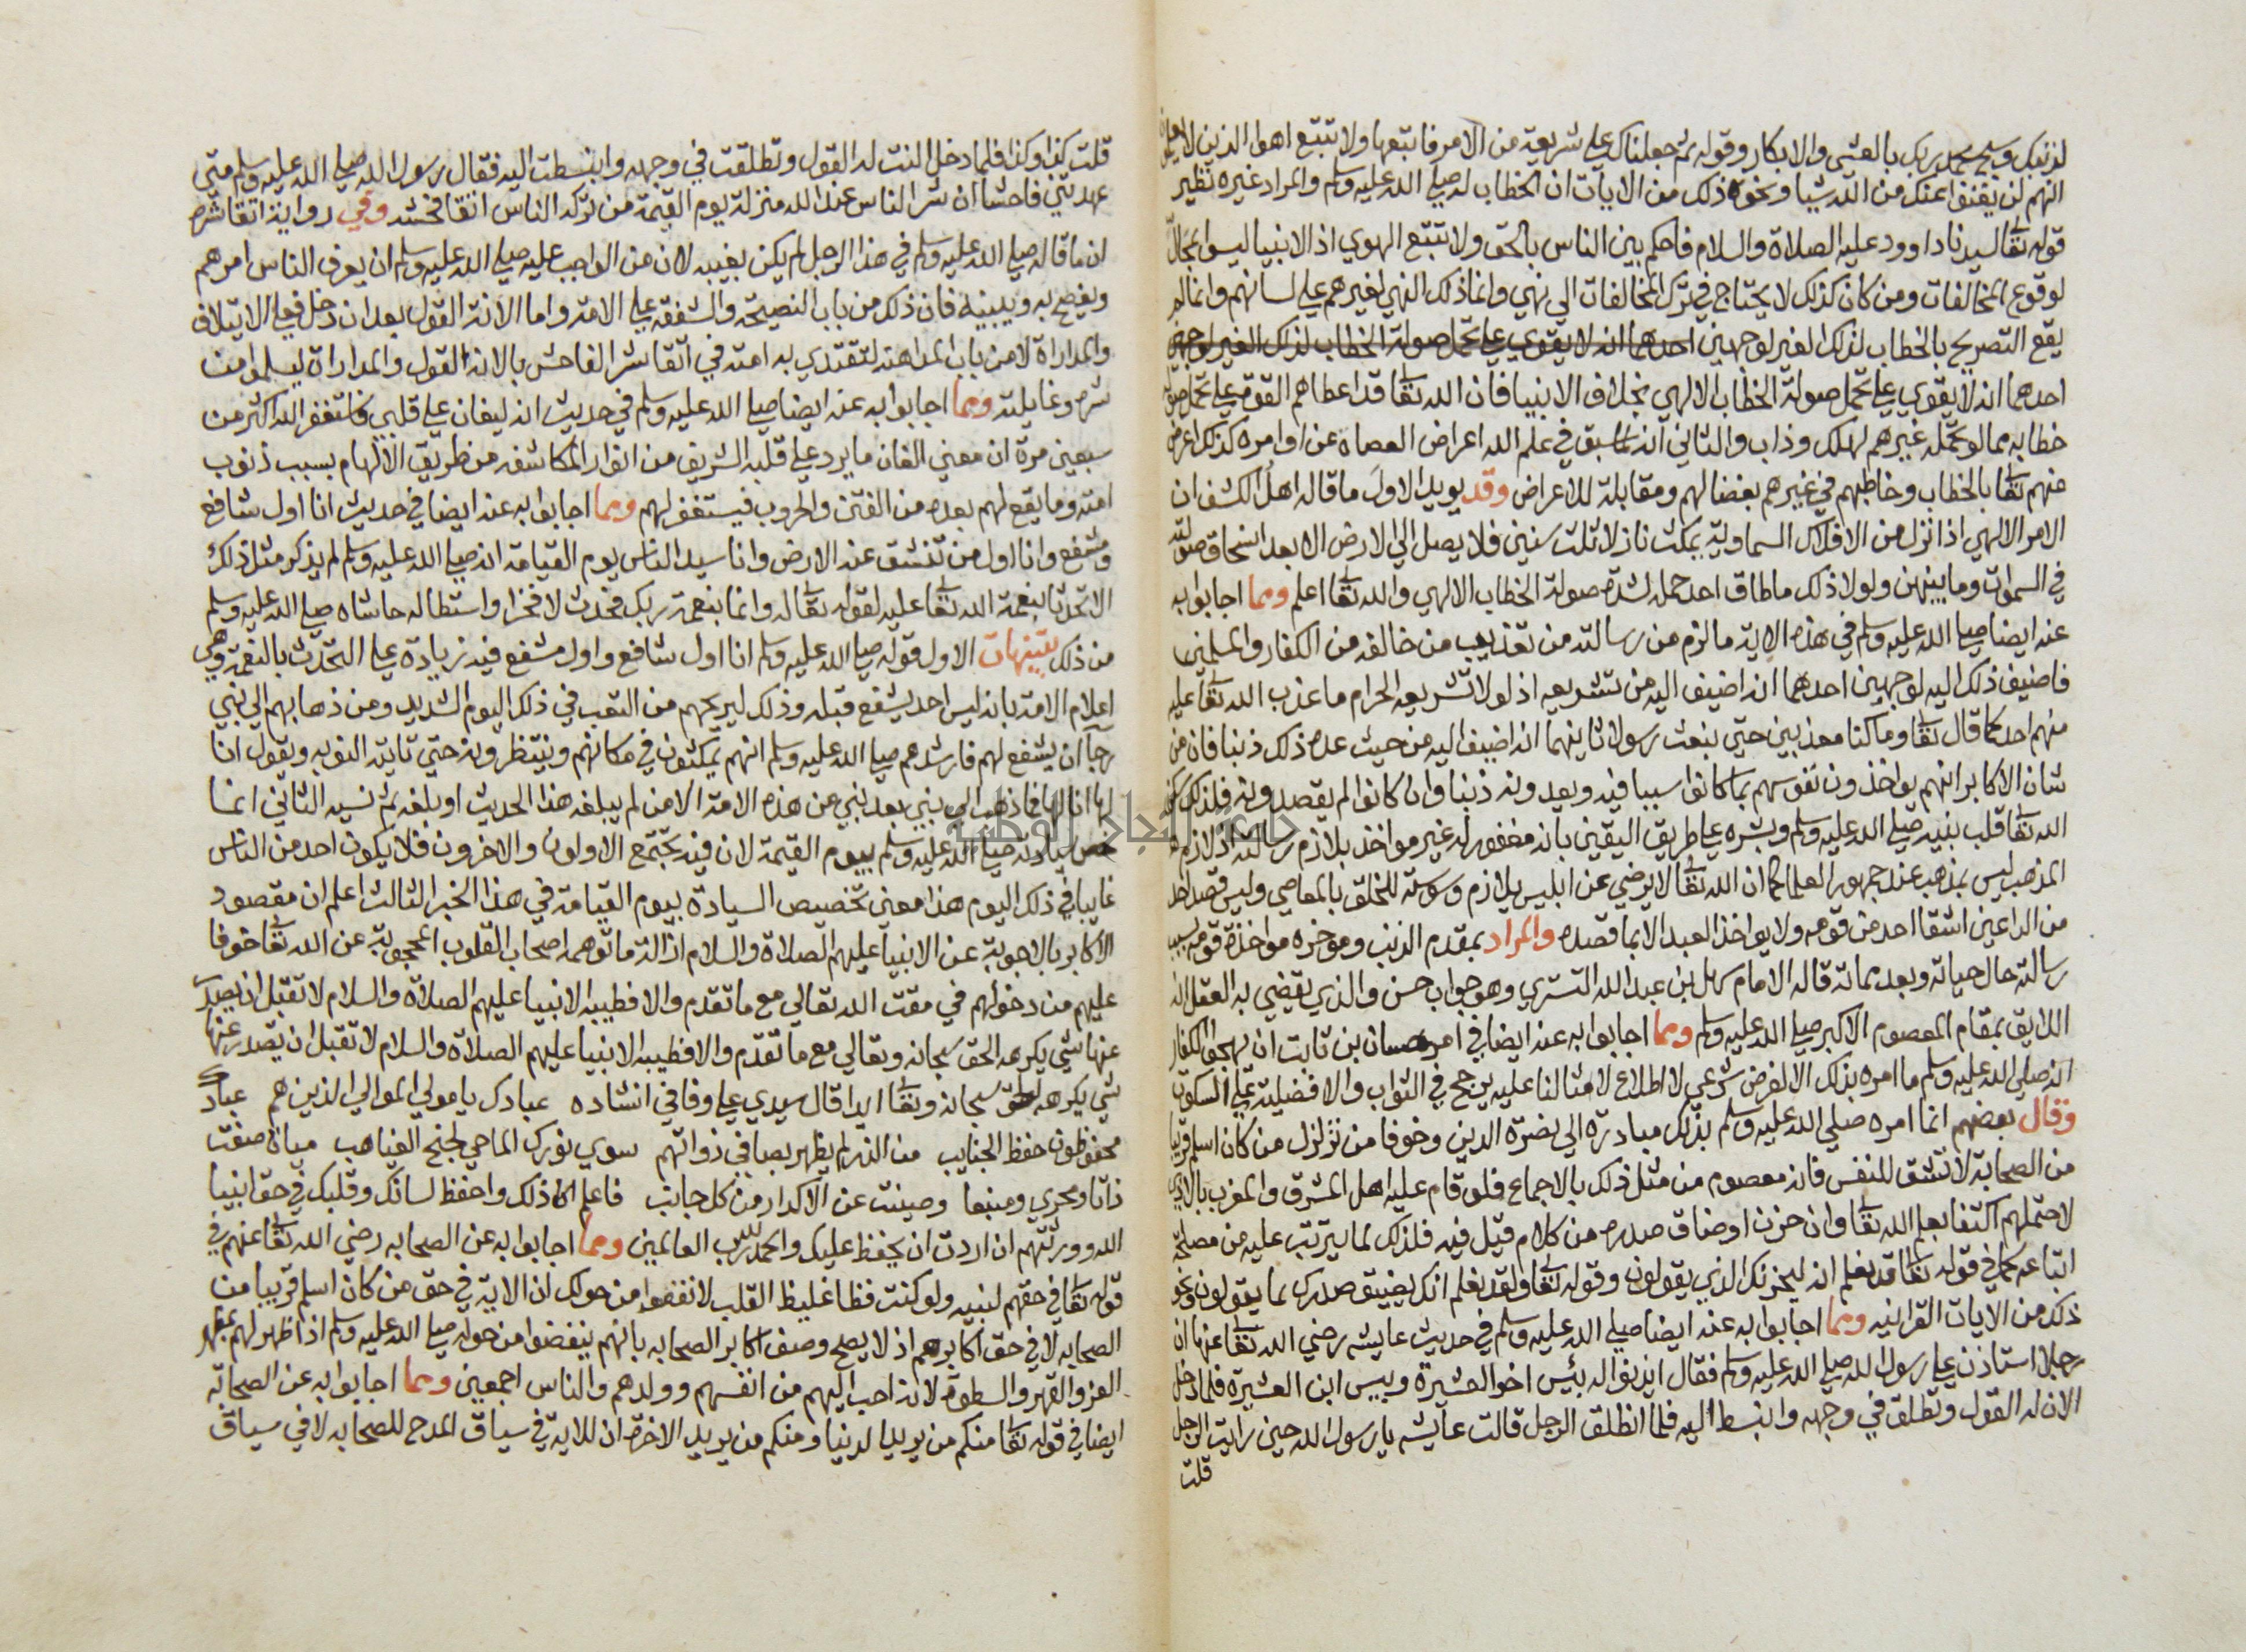 لذنبك وسبح بحمد ربك بالعشي والابكار وقوله ثم جعلناك علي شريعة من الامر فاتبعها ولا تتبع اهوا الذين لا يعلمون
انهم لن يغنوا عنك من الله شيا ونحوه ذلك من الايات ان الخطاب له صلي الله عليه وسلم والمراد غيره نظير
قوله تعا لسيدنا داوود عليه الصلاة والسلام فاحكم بين الناس بالحق ولا تتبع الهوي اذ الانبيا ليسوا بمحال
لوقوع المخالفات ومن كان كذلك لا يحتاج في ترك المخالفات الي نهي وانما ذلك النهي لغيرهم علي لسانهم وانما لم
يقع التصريح بالخطاب لذلك الغير لوجهين احدهما انه لا يقوي علي تحمل صولة الخطاب لذلك الغير لوجهين
احدهما انه لا يقوي علي تحمل صولة الخطاب الالهي بخلاف الانبيا فان الله تعا قد اعطاهم القوة علي تحمل صولة
خطابه مما لو تحمله غيرهم لهلك وذاب والثاني انه لما سبق في علم الله اعراض العصاه عن اوامره كذلك اعرض
عنهم تعا بالخطاب وخاطبهم في غيرهم بغضا لهم ومقابلة للاعراض وقد يويد الاول ما قاله اهل الكشف ان
الامر الالهي اذا نزل من الافلاك السماوية يمكث نازلا ثلث سنين فلا يصل الي الارض الا بعد انسحاق صولته
في السموات وما بينهن ولولا ذلك ما طاق احد حمله لشدة صولة الخطاب الالهي والله تعا اعلم ومما اجابوا به
عنه ايضا صلي الله عليه وسلم في هذه الاية ما لزم من رسالته من تعذيب من خالفه من الكفار والمسلمين
فاضيف ذلك اليه لوجهين احدهما انه اضيف اليه من تشريعه اذ لولا تشريعه الحرام ما عذب الله تعا عليه
منهم احد كما قال تعا وما كنا معذبين حتي نبعث رسولا ثانيهما انه اضيف اليه من حيث عده ذلك ذنبا فان من
شان الاكابر انهم يواخذون نفوسهم بما كانوا سببا فيه ويعدونه ذنبا وان كانوا لم يقصدونه فلذلك
الله تعا قلب نبيه صلي الله عليه وسلم وبشره علي طريق اليقين بانه مغفور له غير مواخذ بلازم رسالته اذ لازم
المذهب ليس بمذهب عند جمهور العلما كما ان الله تعا لا يرضي عن ابليس بلازم وسوسته للخلق بالمعاصي وليس قصد احد
من الداعين اشقا احد من قومه ولا يواخذ العبد الا بما قصده والمراد بمقدم الذنب وموخره مواخذة قومه بسبب
رسالته حال حياته وبعد مماته قاله الامام سهل بن عبد الله التستري وهو جواب حسن والذي يقضي به العقل انه
اللايق بمقام المعصوم الاكبر صلي الله عليه وسلم ومما اجابوا به عنه ايضا في امره حسان بن ثابت ان يهجو الكفار
انه صلي الله عليه وسلم ما امره بذلك الا لغرض شرعي لا اطلاع لامثالنا عليه يرجح في الثواب والافضلية علي السكوت
وقال بعضهم انما امره صلي الله عليه وسلم بذلك مبادرة الي نصرة الدين وخوفا من تزلزل من كان اسلم قريبا
من الصحابة لا تشق للنفس فانه معصوم من مثل ذلك بالاجماع فلو قام عليه اهل المشرق والمغرب بالاذي
لاحتملهم اكتفا بعلم الله تعا وان حزن او ضاق صدره من كلام قيل فيه فلذلك لما يترتب عليه من مصلحة
اتباعه كما في قوله تعا قد نعلم انه ليحزنك الذي يقولون وقوله تعا ولقد نعلم انك يضيق صدرك بما يقولون ونحو
ذلك من الايات القرانيه ومما اجابوا به عنه ايضا صلي الله عليه وسلم في حديث عايشه رضي الله تعا عنها ان
رجلا استاذن علي رسول الله صلي الله عليه وسلم فقال ايذنوا له بئيس اخو العشيرة وبيس ابن العشيرة فلما دخل
الان له القول وتطلق في وجهه وانبسط اليه فلما انطلق الرجل قالت عايشه يا رسول الله حين رايت الرجل
قلت
قلت كذا وكذا فلما دخل النت له القول وتطلقت في وجهه وانبسطت اليه فقال رسول الله صلي الله عليه وسلم متي
عهدتني فاحشا ان شر الناس عند الله منزلة يوم القيمة من تركه الناس اتقا فحشه وفي رواية اتقا شره
ان ما قاله صلي الله عليه وسلم في هذا الرجل لم يكن بغيبه لان من الواجب عليه صلي الله عليه وسلم ان يعرف الناس امرهم
ويفصح به ويبينه فان ذلك من باب النصيحة والشفقه علي الامة واما الانة القول بعد ان دخل فعلي الايتلاف
والمداراة لا من باب المداهنه لتقتدي به امته في اتقا شر الفاحش بالانة القول والمداراة ليسلموا من
شره وغايلته ومما اجابوا به عنه ايضا صلي الله عليه وسلم في حديث انه ليغان علي قلبي فاستغفر الله اكثر من
سبعين مرة ان معني الغان ما يرد علي قلبه الشريف من انوار المكاشفه من طريق الالهام بسبب ذنوب
امته وما يقع لهم بعده من الفتن والحروب فيستغفر لهم ومما اجابوا به عنه ايضا في حديث انا اول شافع
ومشفع وانا اول من تنشق عنه الارض وانا سيد الناس يوم القيامة انه صلي الله عليه وسلم لم يذكر مثل ذلك
الا تحدثا بنعمة الله تعا عليه لقوله تعا له واما بنعمة ربك فحدث لا فخرا واستطاله حاشاه صلي الله عليه وسلم
من ذلك تتنبيهات الاول قوله صلي الله عليه وسلم انا اول شافع واول مشفع فيه زيادة علي التحدث بالنعمة وهي
اعلام الامة بانه ليس احد يشفع قبله وذلك ليريحهم من التعب في ذلك اليوم الشديد ومن ذهابهم الي نبي
رجآ ان يشفع لهم فارشدهم صلي الله عليه وسلم انهم يمكثون في مكانهم وينتظرونه حتي تاتيه النوبه ويقول انا
لها انا لها فما ذهب الي نبي بعد نبي من هذه الامة الا من لم يبلغه هذا الحديث او بلغه ثم نسيه الثاني انما
خص سيادته صلي الله عليه وسلم بيوم القيمة لان فيه يجتمع الاولون والاخرون فلا يكون احد من الناس
غايبا في ذلك اليوم هذا معني تخصيص السيادة بيوم القيامة في هذا الخبر الثالث اعلم ان مقصود
الاكابر بالاجوبة عن الانبيا عليهم الصلاة والسلام ازالة ما توهمه اصحاب القلوب المحجوبة عن الله تعا خوفا
عليهم من دخولهم في مقت الله تعالي مع ما تقدم والا فطيبه الانبيا عليهم الصلاة والسلام لا تقبل ان يصدر
عنها شي يكرهه الحق سبحانه وتعالي مع ما تقدم والا فطيبه الانبيا عليهم الصلاة والسلام لا تقبل ان يصدر عنها
شي يكرهه الحق سبحانه وتعا ابدا قال سيدي علي وفا في انشاده عبادك يا مولي الموالي الذين هم عباد
محفوظون حفظ الجنايب من الذر لم يظهر بصافي ذواتهم سوي نورك الماحي لجنح الغياهب مياة صفت
ذاتا ومجري ومنبعا وصينت عن الاكدار من كل جانب فاعلم ذلك واحفظ لسانك وقلبك في حق انبيا
الله وورثتهم ان اردت ان يحفظ عليك والحمد لله رب العالمين ومما اجابوا به عن الصحابه رضي الله تعا عنهم في
قوله تعا في حقهم لنبيه ولو كنت فظا غليظ القلب لانفضوا من حولك ان الاية في حق من كان اسلم قريبا من
الصحابه لا في حق اكابرهم اذ لا يصح وصف اكابر الصحابه بانهم ينفضوا من حوله صلي الله عليه وسلم اذا ظهر لهم بمظهر
العز والقهر والسطوة لانه احب اليهم من انفسهم وولدهم والناس اجمعين ومما اجابوا به عن الصحابة
ايضا في قوله تعا منكم من يريد الدنيا ومنكم من يريد الاخرة ان للاية في سياق المدح للصحابه لا في سياق